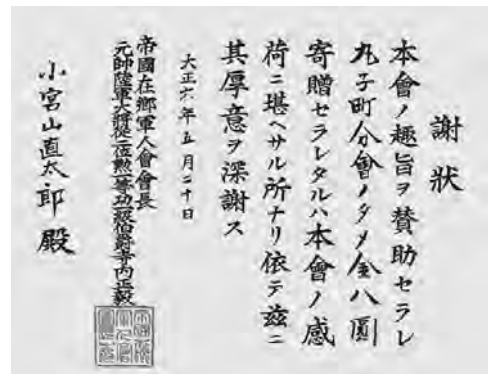 謝狀
本會ノ趣旨ヲ賛助セラレ
丸子町分會ノタメ金八圓
寄贈セラレタルハ本會ノ感
荷ニ堪ヘサル所ナリ依テ茲ニ
其厚意ヲ深謝ス
大正六年五月三十日
帝國在郷軍人會會長
元帥陸軍大將從一位勲一等功一級伯爵寺内正毅
小宮山直太郎殿